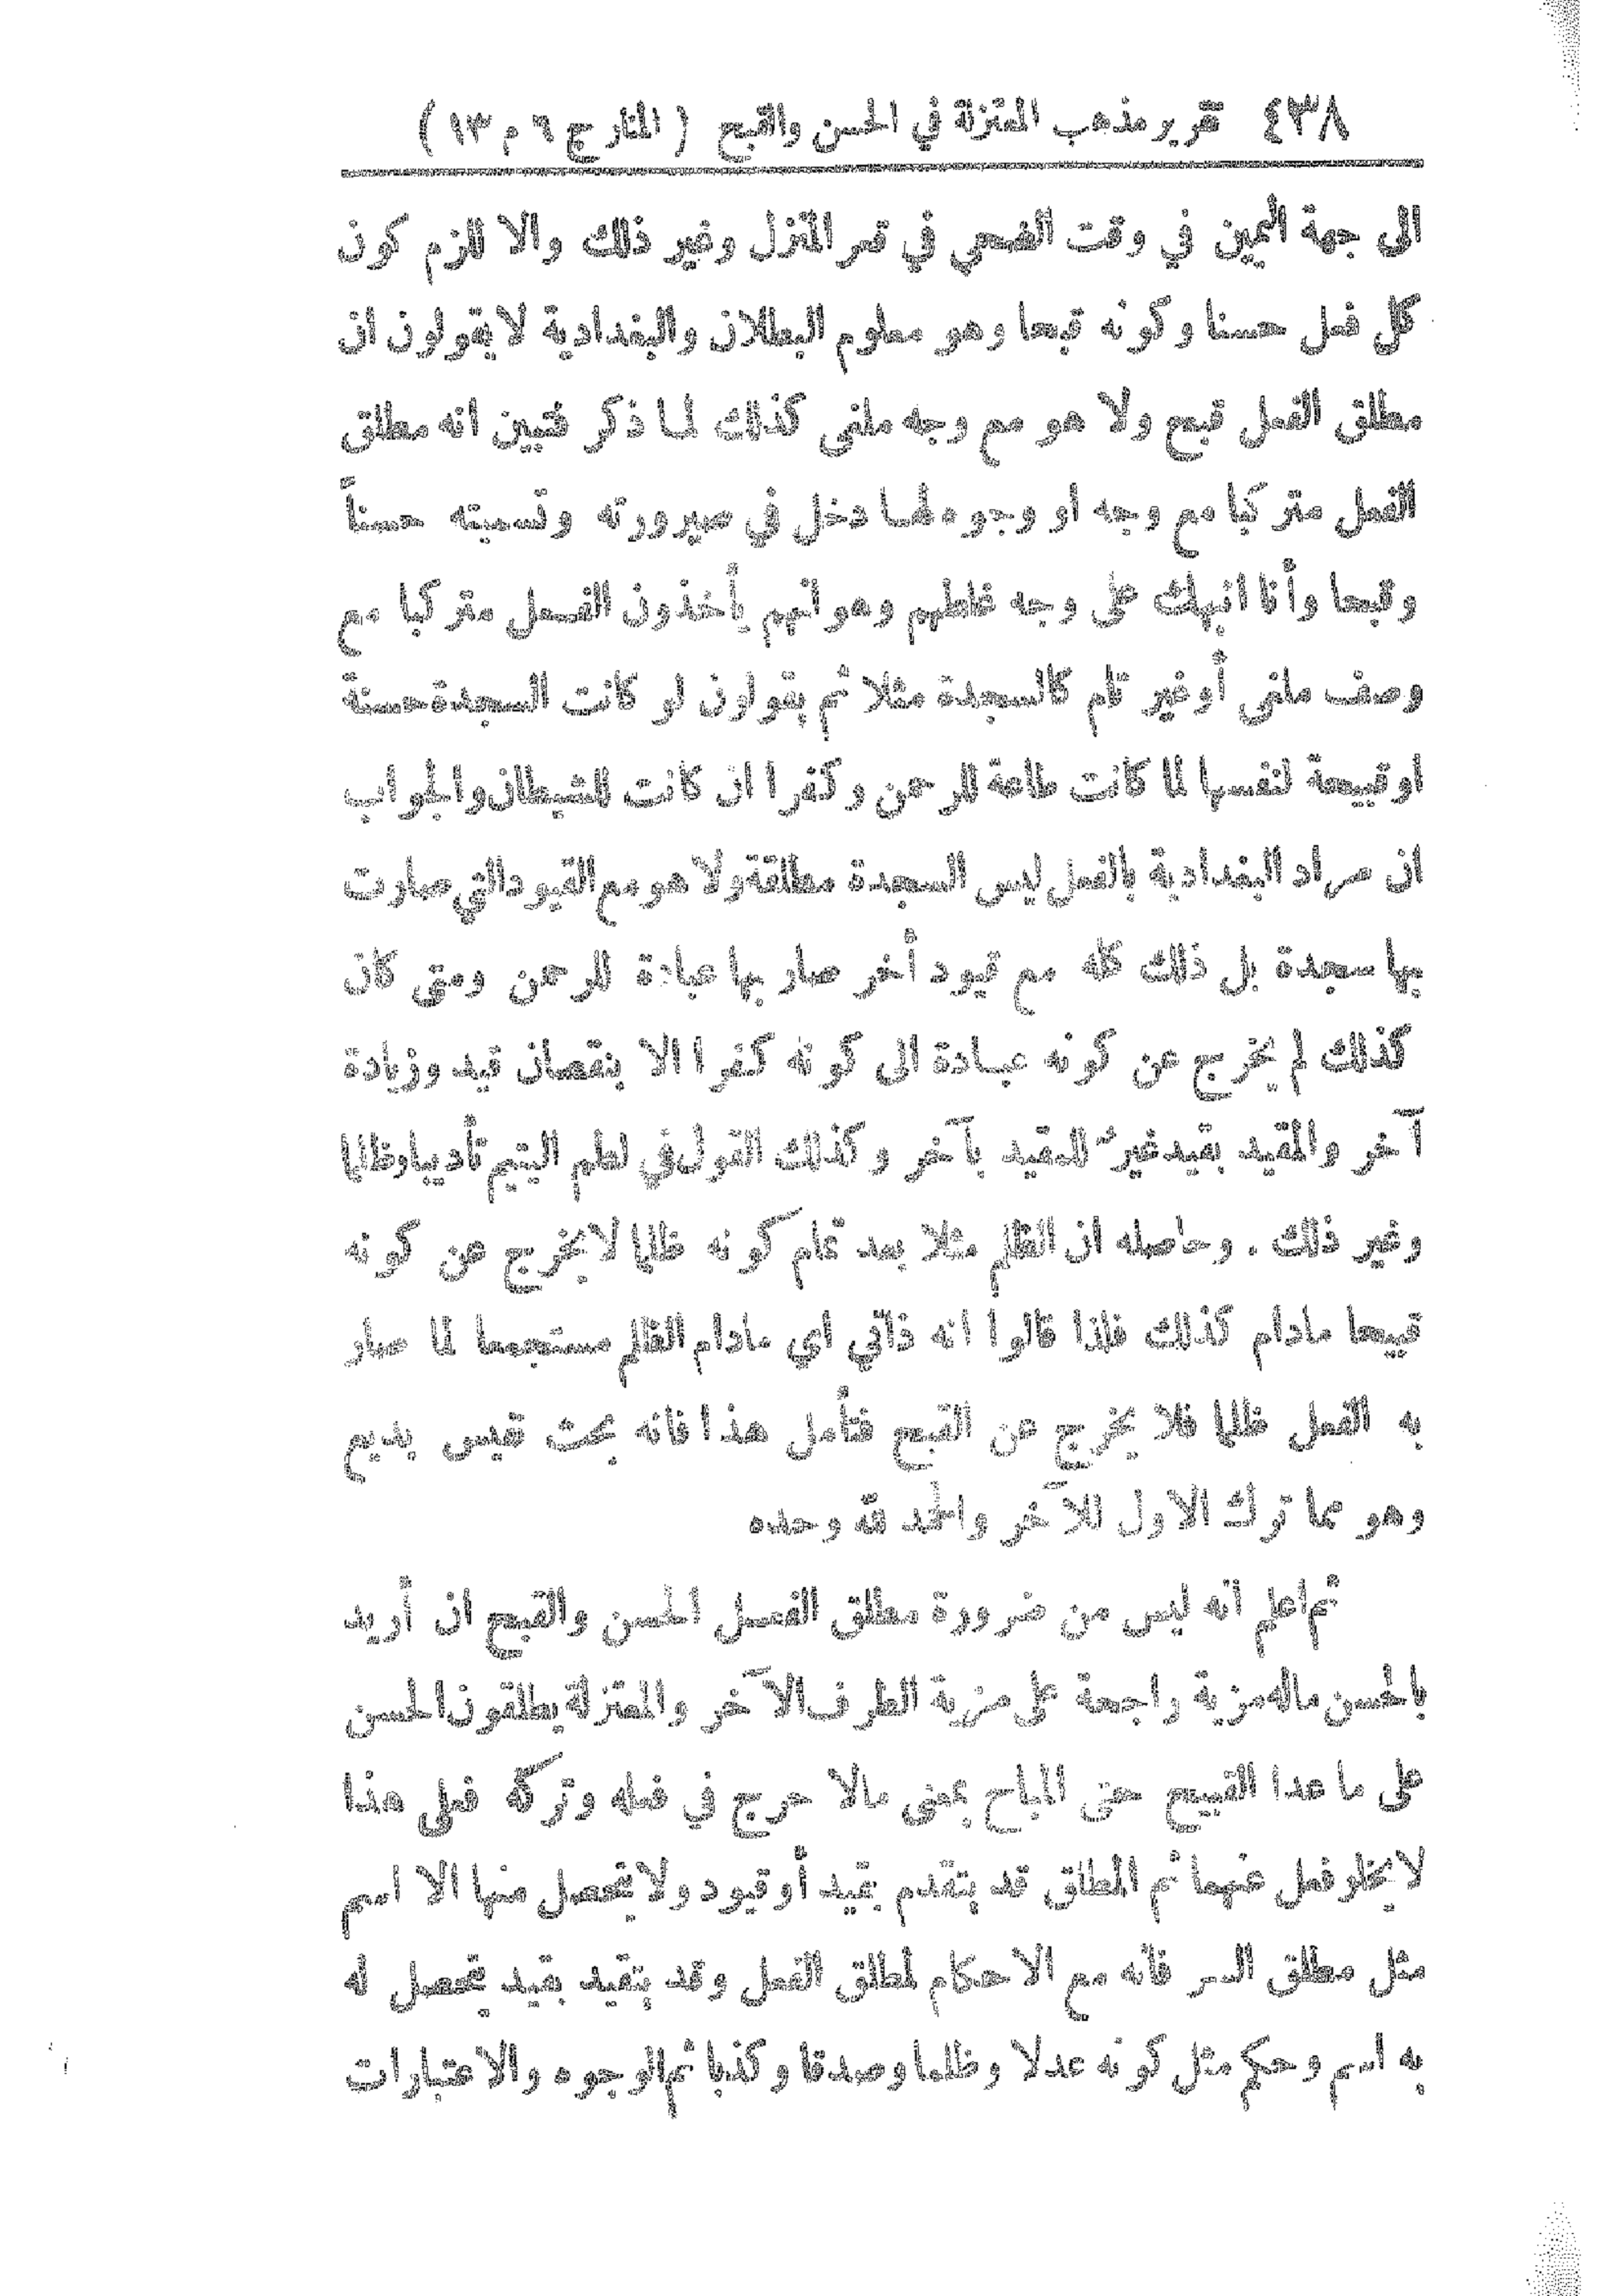 ٤٣٨ تقرير مذهب المعتزلة في الحسن والقبح ( المنار ج ٦ م ١٣ )
الى جهة اليمين في وقت الضحى في قعر المنزل وغير ذلك والا للزم كون
كل فعل حسنا وكونه قبيحا وهو معلوم البطلان والبغدادية لا يقولون ان
مطلق الفعل قبيح ولا هو مع وجه ملغى كذلك لما ذكر فتبين انه مطلق
الفعل متركبا مع وجه او وجوه لها دخل في صيرورته وتسميته حسناً
وقبيحا وأنا انبهك على وجه غلطهم وهو انهم يأخذون الفعل متركبا مع
وصف ملغى أو غير تام كالسجدة مثلا ثم يقولون لو كانت السجدة حسنة
او قبيحة لنفسها لما كانت طاعة للرحمن وكفرا ان كانت للشيطان والجواب
ان مراد البغدادية بالفعل ليس السجدة مطلقة ولا هو مع القيود التي صارت
بها سجدة بل ذلك كله مع قيود أخر صار بها عبادة للرحمن ومتى كان
كذلك لم يخرج عن كونه عبادة الى كونه كفرا الا بنقصان قيد وزيادة
آخر والمقيد بقيد غيرُ المقيد بآخر وكذلك القول في لطم اليتيم تأديبا وظلما
وغير ذلك . وحاصله ان الظلم مثلا بعد تمام كونه ظلما لا يخرج عن كونه
قبيحا مادام كذلك فلذا قالوا انه ذاتي اي مادام الظلم مستجمعا لما صار
به الفعل ظلما فلا يخرج عن القبح فتأمل هذا فانه بحث نفيس بديع
وهو مما ترك الاول للآخر والحمد لله وحده
ثم اعلم انه ليس من ضرورة مطلق الفعل الحسن والقبح ان أريد
بالحسن ماله مزية راجحة على مزية الطرف الآخر والمعتزلة يطلقون الحسن
على ما عدا القبيح حتى المباح بمعنى مالا حرج في فعله وتركه فعلى هذا
لا يخلو فعل عنهما ثم المطلق قد يتقدم بقيد أو قيود ولا يتحصل منها الا اسم
مثل مطلق فانه مع الاحكام لمطلق الفعل وقد يتقيد بقيد يحصل له
به اسم وحكم مثل كونه عدلا وظلما وصدقا وكذبا ثم الوجوه والاعتبارات